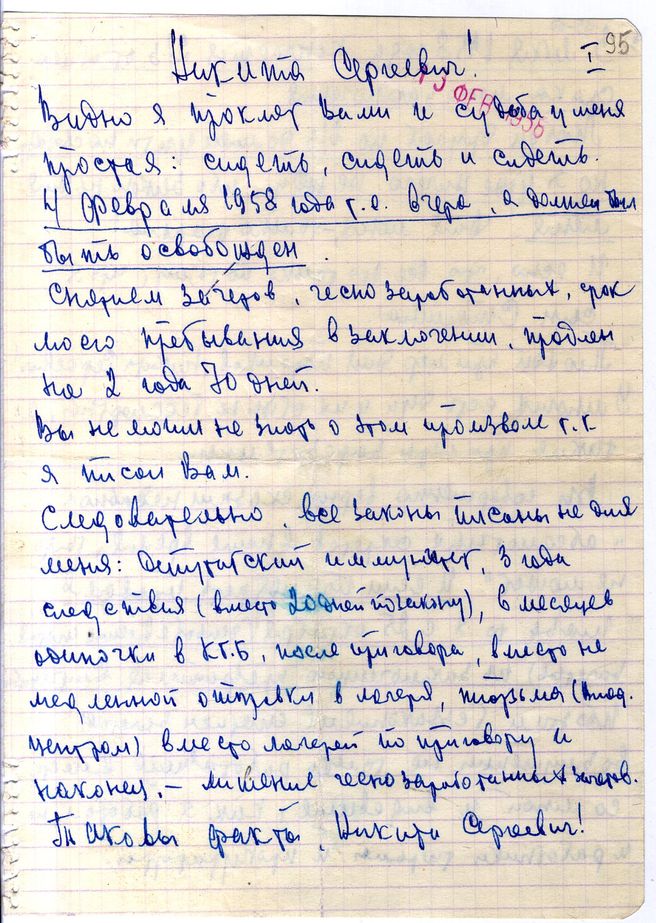 95
Никита Сергеевич! I
5 ФЕВ 1958
Видно я проклят Вами и судьба у меня
простая: сидеть, сидеть и сидеть.
4 Февраля 1958 года т.е. вчера, я должен был
быть освобожден.
Снятием зачетов, чесно заработанных, срок
моего пребывания в заключении, продлен
на 2 года 70 дней.
Вы не могли не знать о этом произволе т.к
я писал Вам.
Следовательно, все законы писаны не для
меня: Депутатский иммунитет, 3 года
следствия (вместо 20 дней по закону), 6 месяцев
одиночки в КГБ, после приговора, вместо не
медленной отправки в лагеря, тюрьма (Влад.
централ) вместо лагерей по приговору и
наконец, – лишение чесно заработанных зачетов.
Таковы факты, Никита Сергеевич!